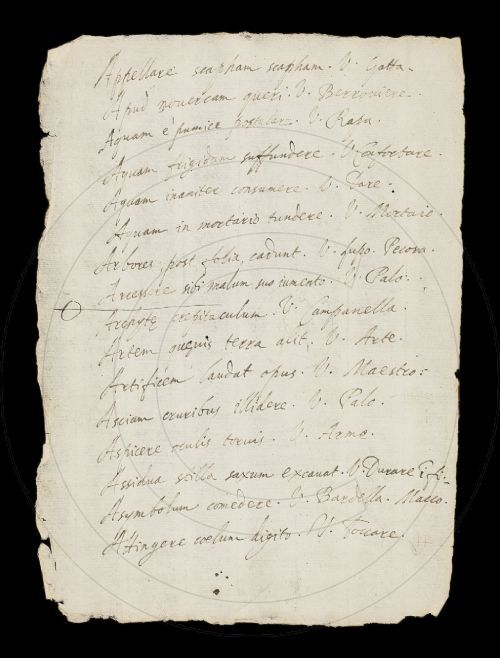 Appellare scapham scapham. V. Gatta.
Apud novercam queri. V. Berroviere.
Aquam è pumice postulare. V. Rapa.
Aquam frigidam suffundere. V. Confortare.
Aquam inaniter consumere. V. Dare.
Aquam in mortario tundere. V. Mortaio.
Arbores, post folia, cadunt. V. Lupo. Pecora.
Arcessere sibi malum suo iumento. V. Palo.
Archytę crepitaculum. V. Campanella.
Artem quęuis terra alit. V. Arte.
Artificem laudat opus. V. Maestro:
Asciam cruribus illidere. V. Palo.
Aspicere oculis toruis. V. Arme.
Assidua stilla saxum excauat. V. Durare
Asymbolum comedere. V. Bardella. Macco.
Attingere coelum digito. V. Toccare.